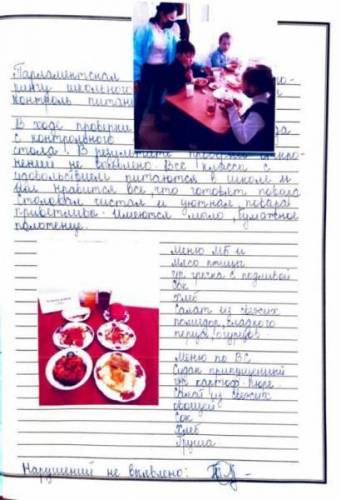 Парламентская
рингу школьного
контроль питан
В ходе проверки
с контрольного
стола. В результате проверки откло-
нений не выявлено. Все 1 классы с
удовольствием питаются в школе и
им нравится все, что готовят повара
Столовая чистая и уютная, повара
приветливые. Имеются мыло, бумажное
полотенце.
Меню МБ и
мясо птицы
гр. гречка с подливой
Сок
Хлеб
Салат из свежих
помидор, сладкого
перца, огурцов
Меню по ВС
Судак припущенный
гр. картоф. пюре.
Салат из свежих
овощей
Сок
Хлеб
Груша
Нарушений не выявлено: